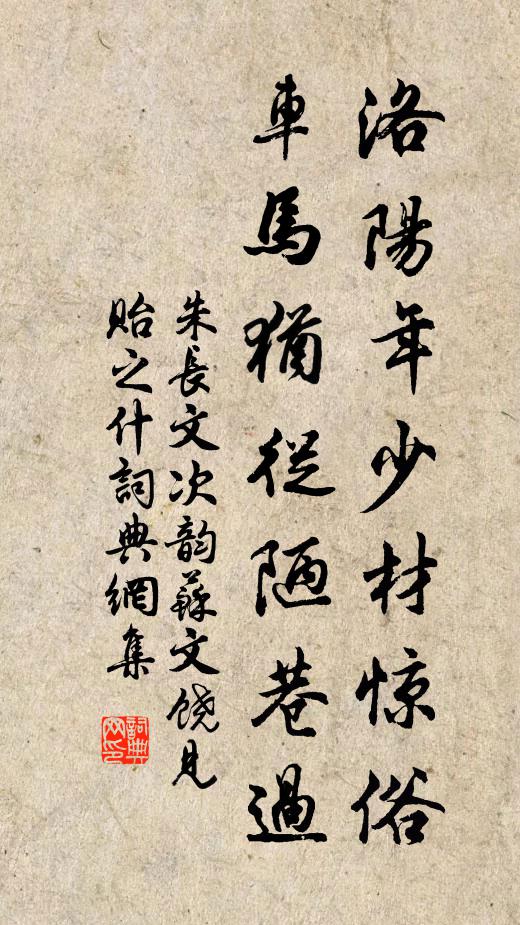 洛陽年少材惊俗
車馬猶從陋巷過
朱長文次韵蘇文饒見
貽之什詞典網集
詞典
网印